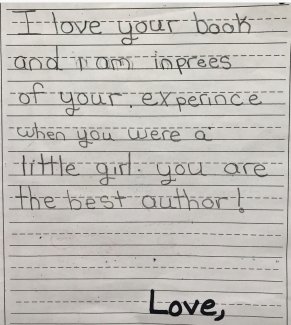 I love your book
and I am inprees
of your experince
when you were a
little girl. you are
the best author!
Love,